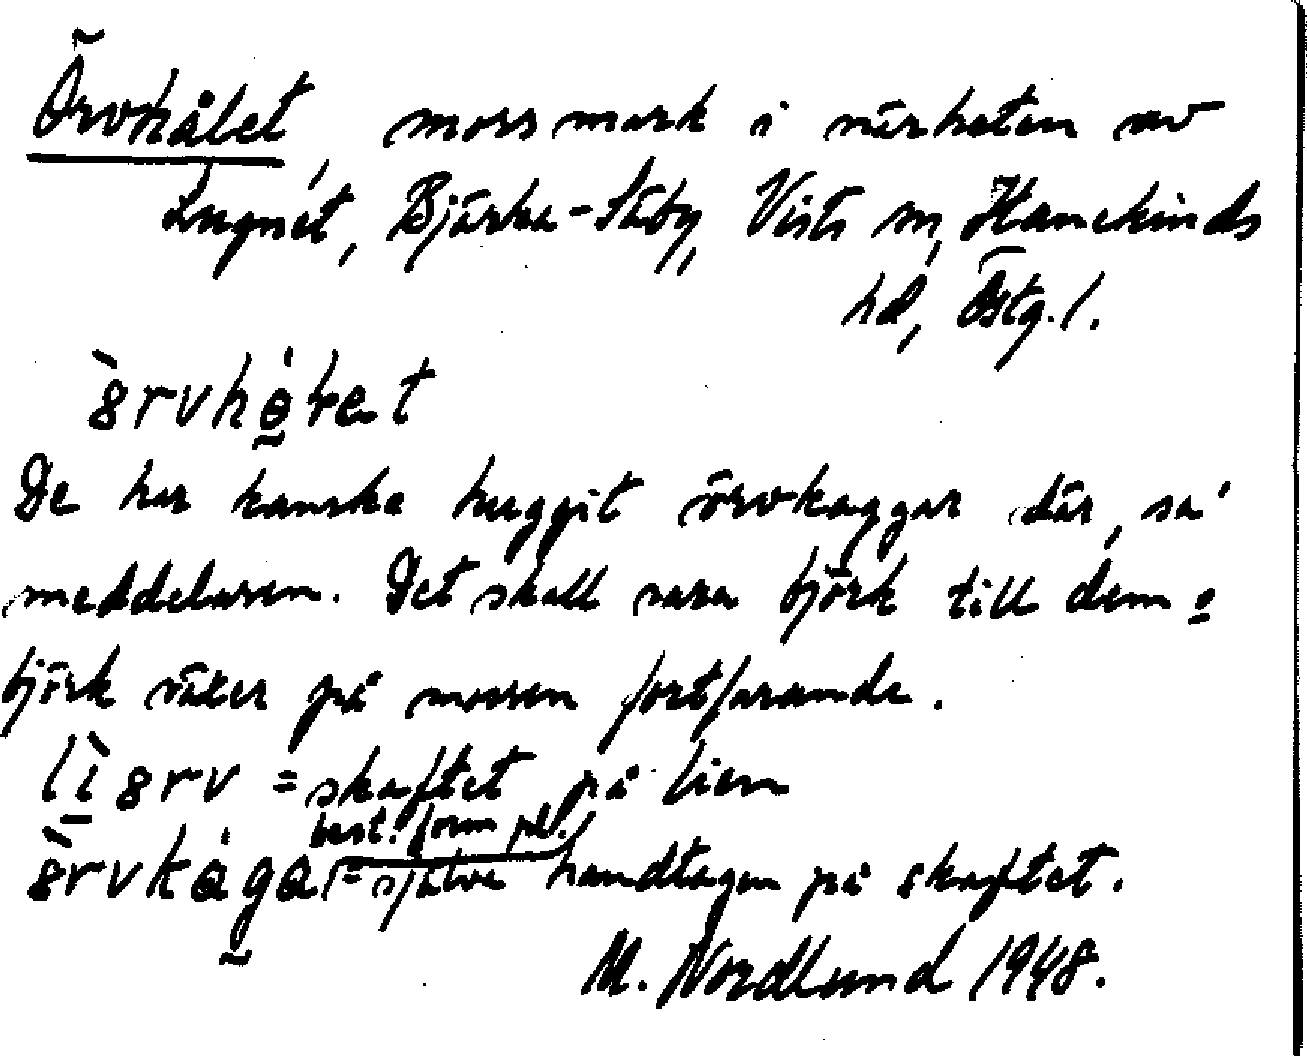 Örvhålet, mossmark i närheten av
Lugnet, Bjärka-Säby, Vists sn, Hanekinds
hd, Östg.l.
De har kanske huggit örvkaggar där, sa'
meddelaren. Det skall vara björk till dem o
björk växer på mossen fortfarande.
= skaftet på lien
best. form pl.
= själva handtagen på skaftet.
M. Nordlund 1948.